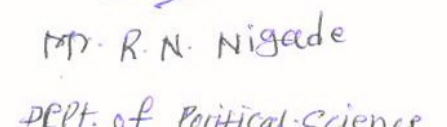 Mr. R. N. Nigade
Dept. of Political Science